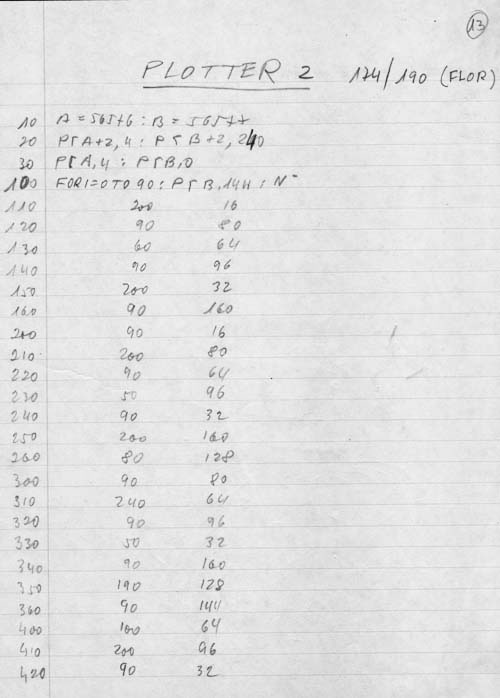 13
PLOTTER 2 174/190 (FLOR)
10 A = 56576 : B = 56577
20 PΓA+2,4 : PΓB+2,240
30 PΓA,4 : PΓB,0
100 FOR I=0 TO 90 : PΓB,144 : N-
110 200 16
120 90 80
130 60 64
140 90 96
150 200 32
160 90 160
200 90 16
210 200 80
220 90 64
230 50 96
240 90 32
250 200 160
260 80 128
300 90 80
310 240 64
320 90 96
330 50 32
340 90 160
350 190 128
360 90 144
400 100 64
410 200 96
420 90 32